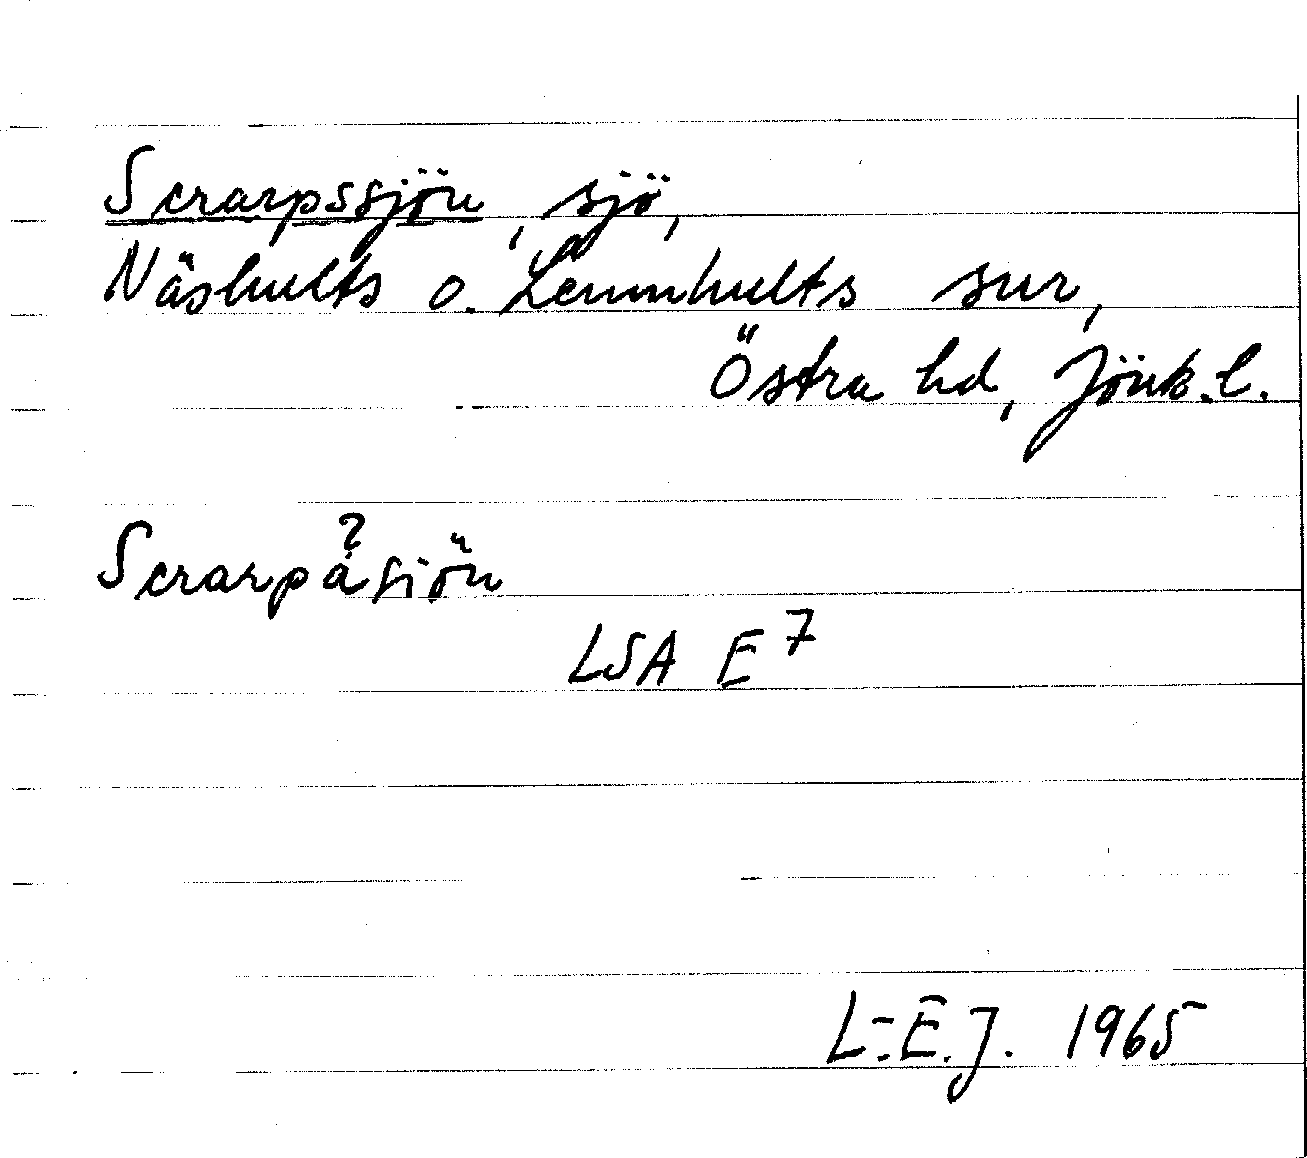 Scrarpssjön, sjö,
Näshults o. Lemnhults snr,
Östra hd, Jönk. l.
?
Scrarpåsiön
LSA E7
L-E. J. 1965